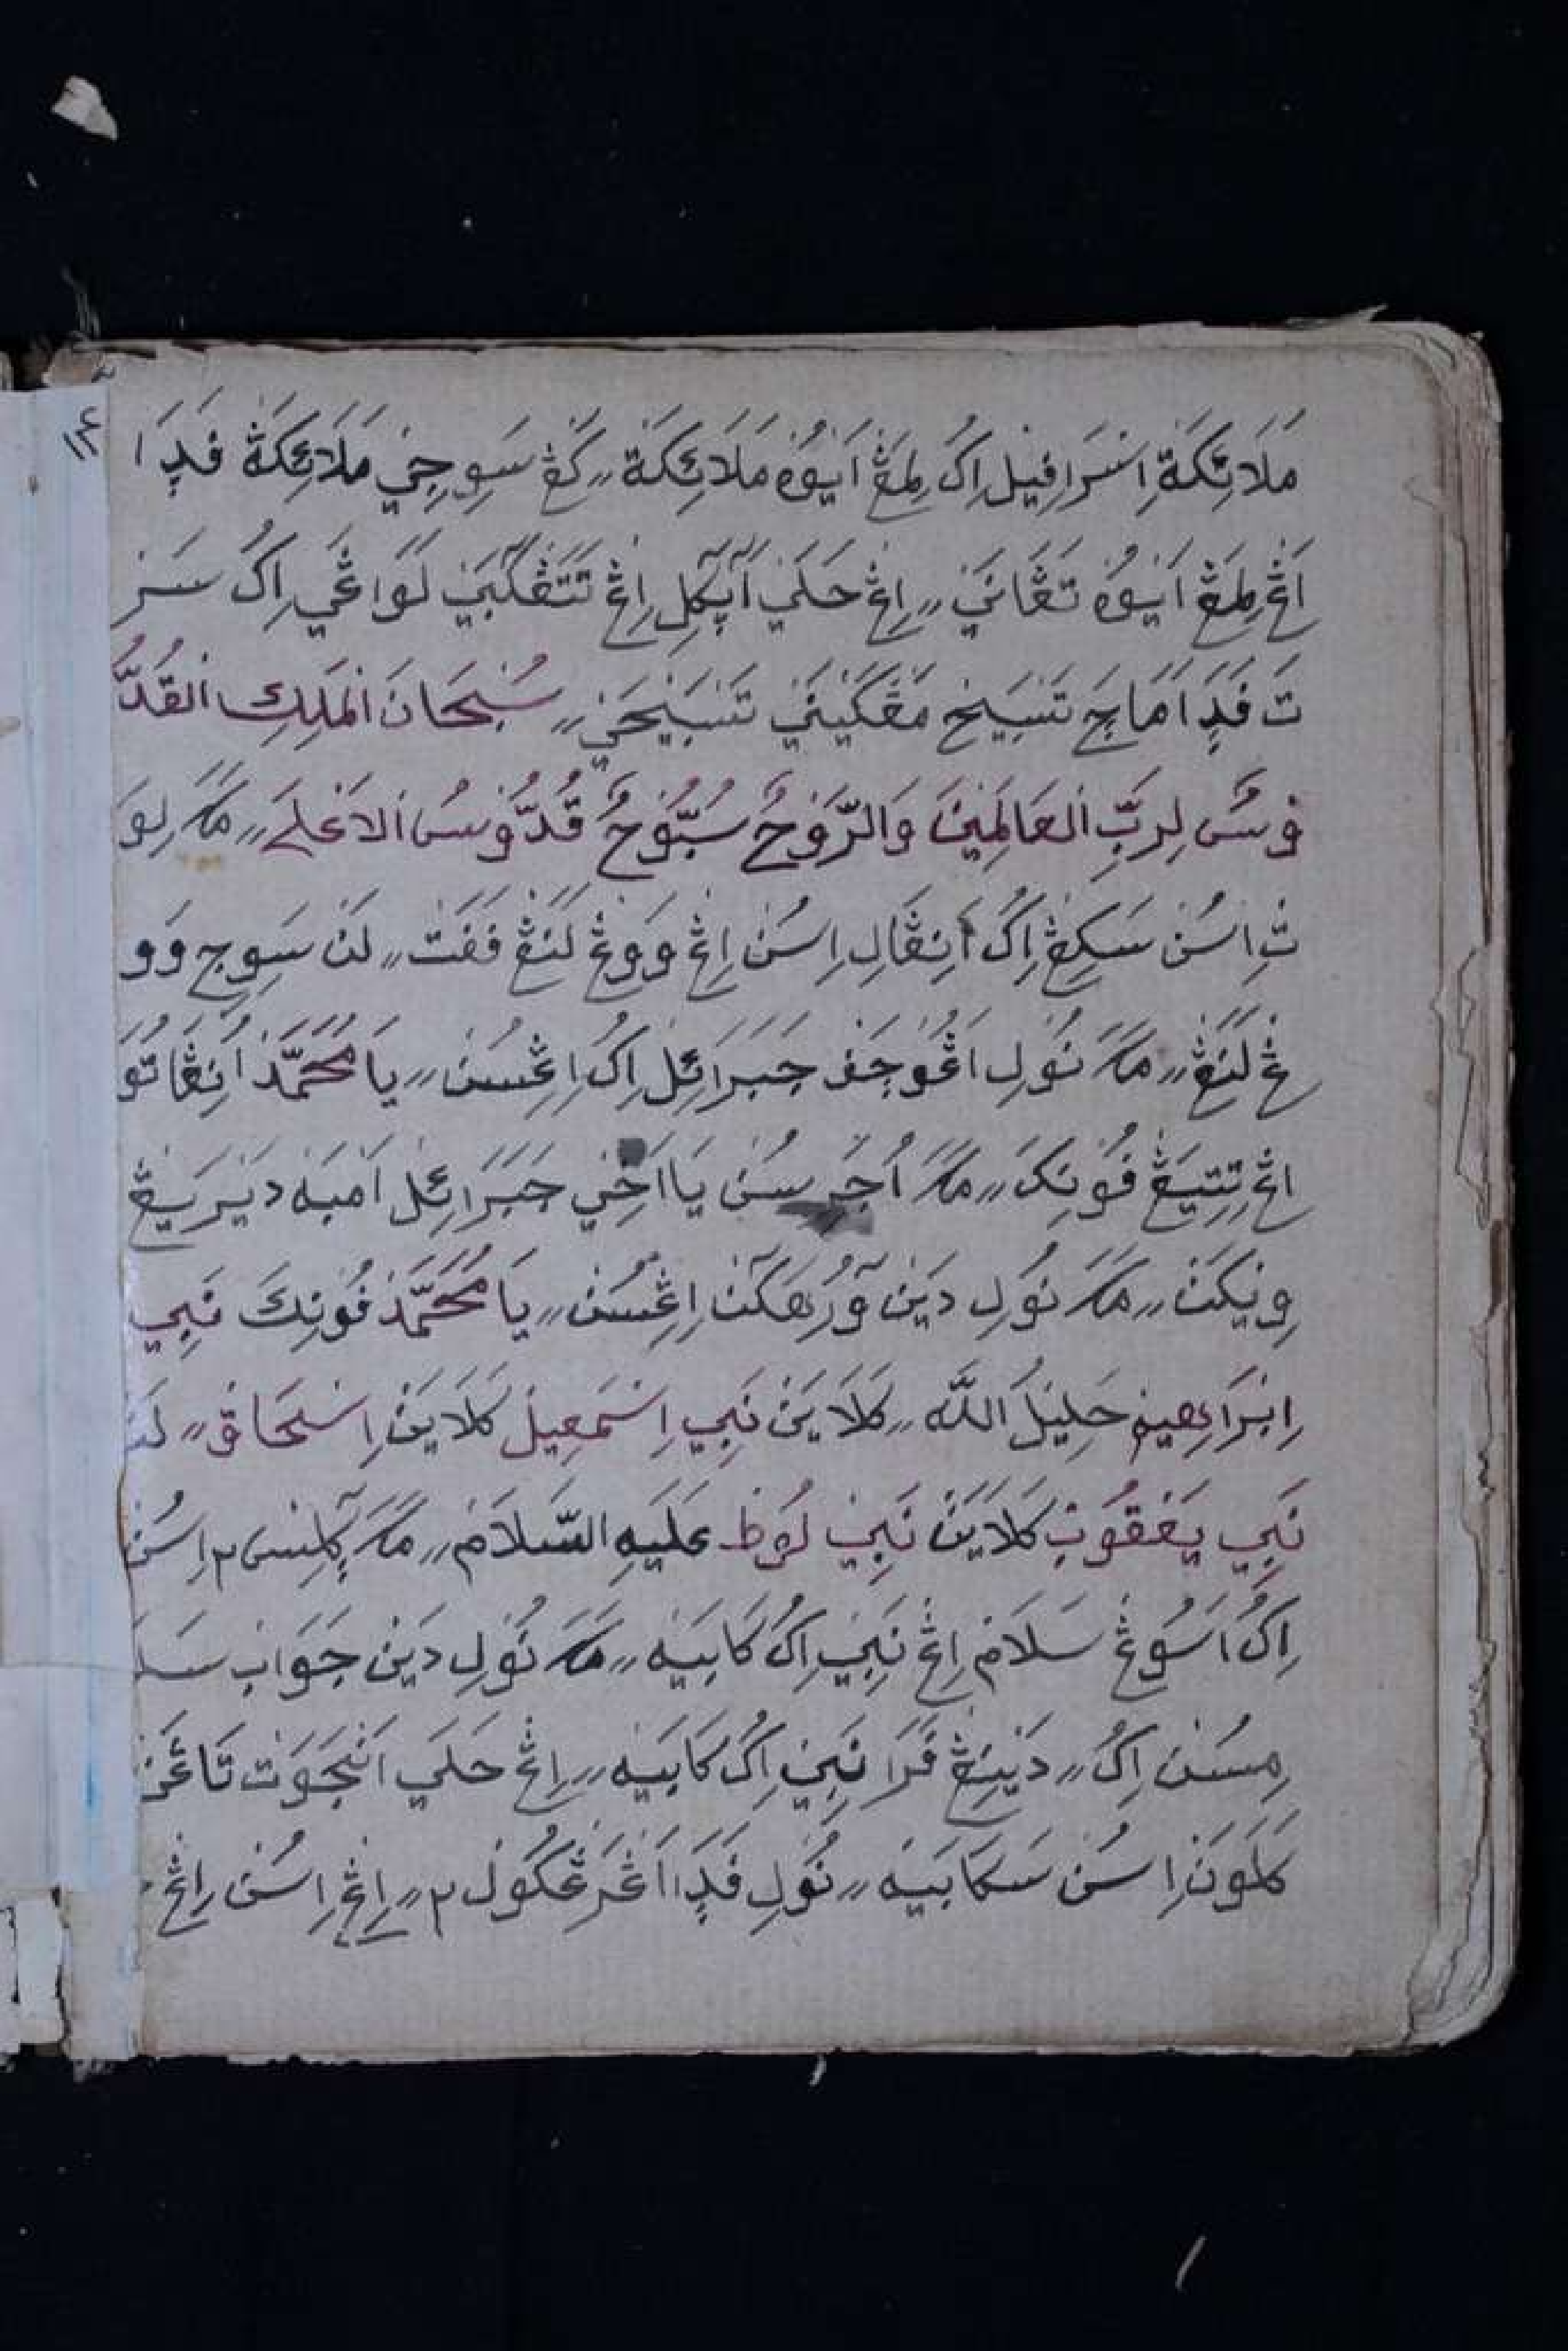 مَلَائِكَةْ اِسْرَافِيْل اِكُ لِمَڠْ اَيْوُهْ مَلَائِكَةْ كَڠْ سَوِجِيْ مَلَائِكَةْ فَدٍ ا
اَڠْ لِمَڠْ اَيْوُهْ تَڠَانَيْ اِڠْ حَلَيْ اَڮِكَلْ اِڠْ تَتَڠْكَبَيْ لَوَاڠَيْ اِكُ سَرْ
تَ فَدَ اَمَاجَ تَسْبِيْحْ مَڠْكَيْنَيْ تَسْبِيْحَيْ سُبْحَانَ الْمَلِكِ الْقُدُّ
وْسُ لِرَبِّ الْعَالَمِيْنَ وَالرُّوْحُ سُبُّوْحٌ قُدُّوْسُ الْاَعْلَى مَكَ لِوَ
تْ اِسُنْ سَكِڠْ اِكُ اَنِڠَالِ اِسُنْ اِڠْ وَوڠْ لَنَڠْ فَفَتْ لَنْ سَوِجِ وَو
ڠْ لَنَڠْ مَكَ نُوْلِ اَڠُوْجَفْ جَبَرَائِلْ اِكُ اِڠِسُنْ يَا مُحَمَّدْ اَنِڠَاتُوَ
اِڠْ تِتِيَڠْ فُوْنِكَ مَكَ اُجَرِسُنْ يَا اَخِيْ جَبَرَائِلْ اَمْبَهْ دَيْرَيْڠْ
وِنِيْكَنْ مَكَ نُوْلِ دَيْنْ وَرُهَكَنْ اِڠِسُنْ يَا مُحَمَّدْ فُوْنِكَ نَبِي
اِبْرَاهِيْمْ خَلِيْلُ اللّٰهْ كَلَايَنْ نَبِي اِسْمَعِيْل كَلَايَنْ اِسْحَاقْ لَنْ
نَبِي يَعْقُوْبْ كَلَايَنْ نَبِيْ لُوْط عَلَيْهِ السَّلَامْ مَكَ ڮَلِيْسْ٢ اِسُنْ
اِكُ اَسُوْڠْ سَلَامْ اِڠْ نَبِيْ اِكُ كَابَيْهْ مَكَ نُوْلِ دَيْنْ جَوَابْ سَلَ
مِسُنْ اِكُ دَنَيْڠْ فَرَا نَبِيْ اِكُ كَابَيْهْ اِڠْ حَلَيْ اَنْجَوَتْ تَاڠَنْ
كَلَوَنْ اِسُنْ سَكَابَيْهْ نُوْلِ فَدَ اَڠْرَڠْكُوْل٢ اِڠْ اِسُنْ اِڠْ